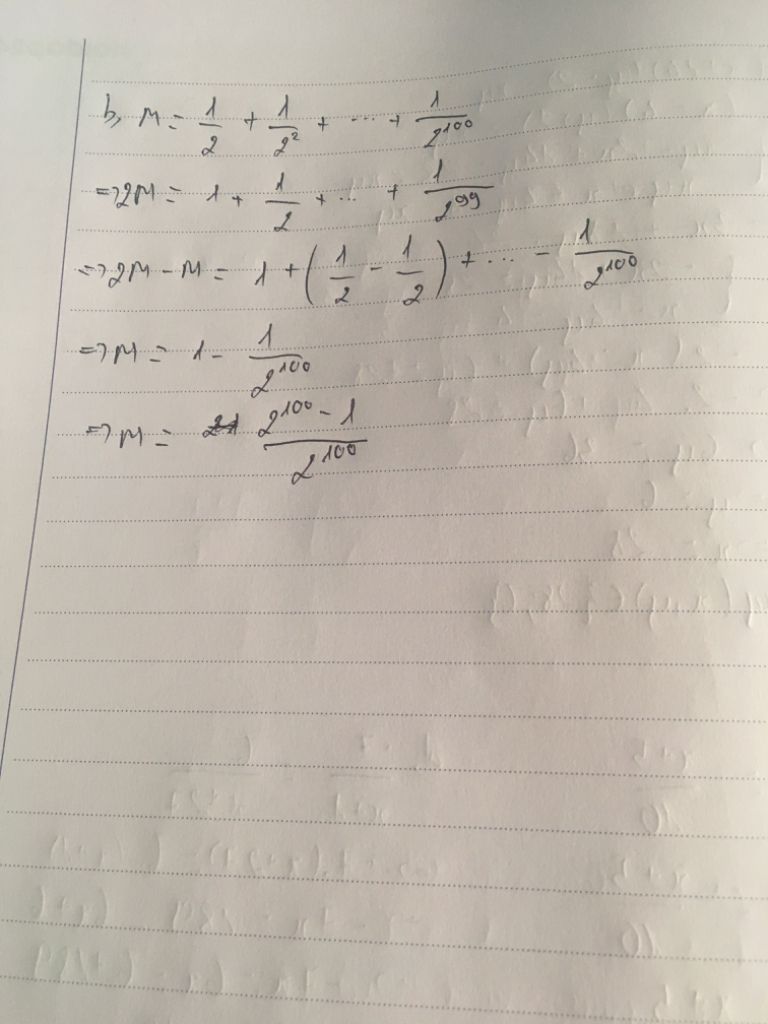 b, M = 1/2 + 1/2² + ... + 1/2¹⁰⁰
=> 2M = 1 + 1/2 + ... + 1/2⁹⁹
=> 2M - M = 1 + (1/2 - 1/2) + ... - 1/2¹⁰⁰
=> M = 1 - 1/2¹⁰⁰
=> M = (2¹⁰⁰ - 1)/2¹⁰⁰